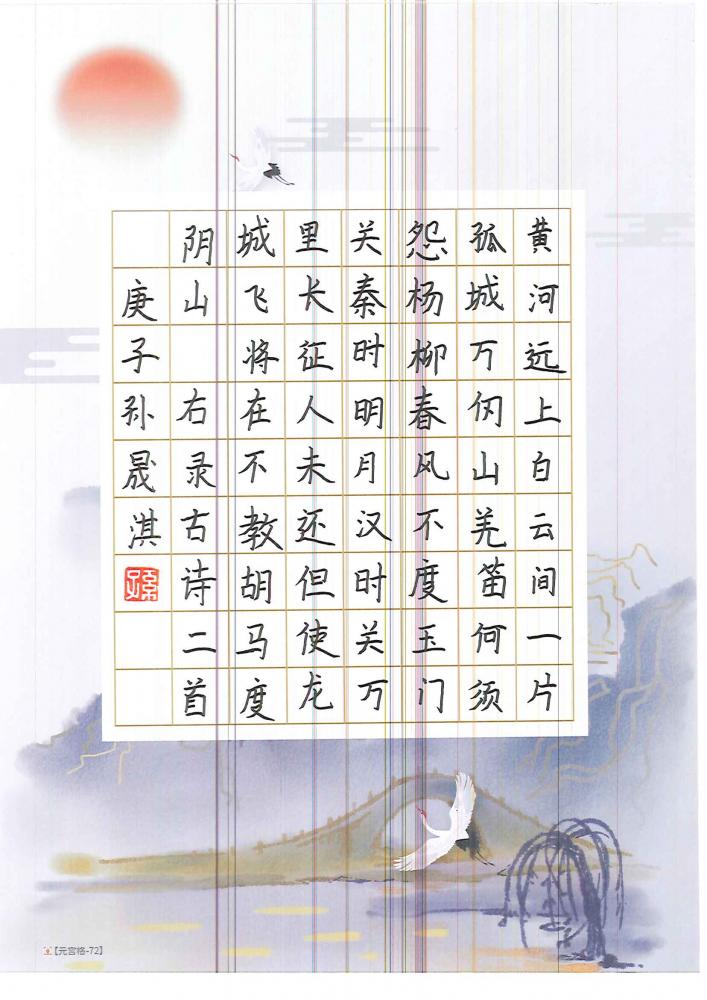 黄河远上白云间一片
孤城万仞山羌笛何须
怨杨柳春风不度玉门
关秦时明月汉时关万
里长征人未还但使龙
城飞将在不教胡马度
阴山 右录古诗二首
庚子孙晟淇
孫
【元宫格-72】